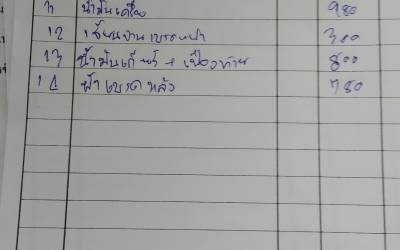 น้ำมันเครื่อง 980
12 เจียจานเบรคหน้า 300
13 น้ำมันเกียร์ + เฟืองท้าย 800
14 ผ้าเบรคหลัง 780